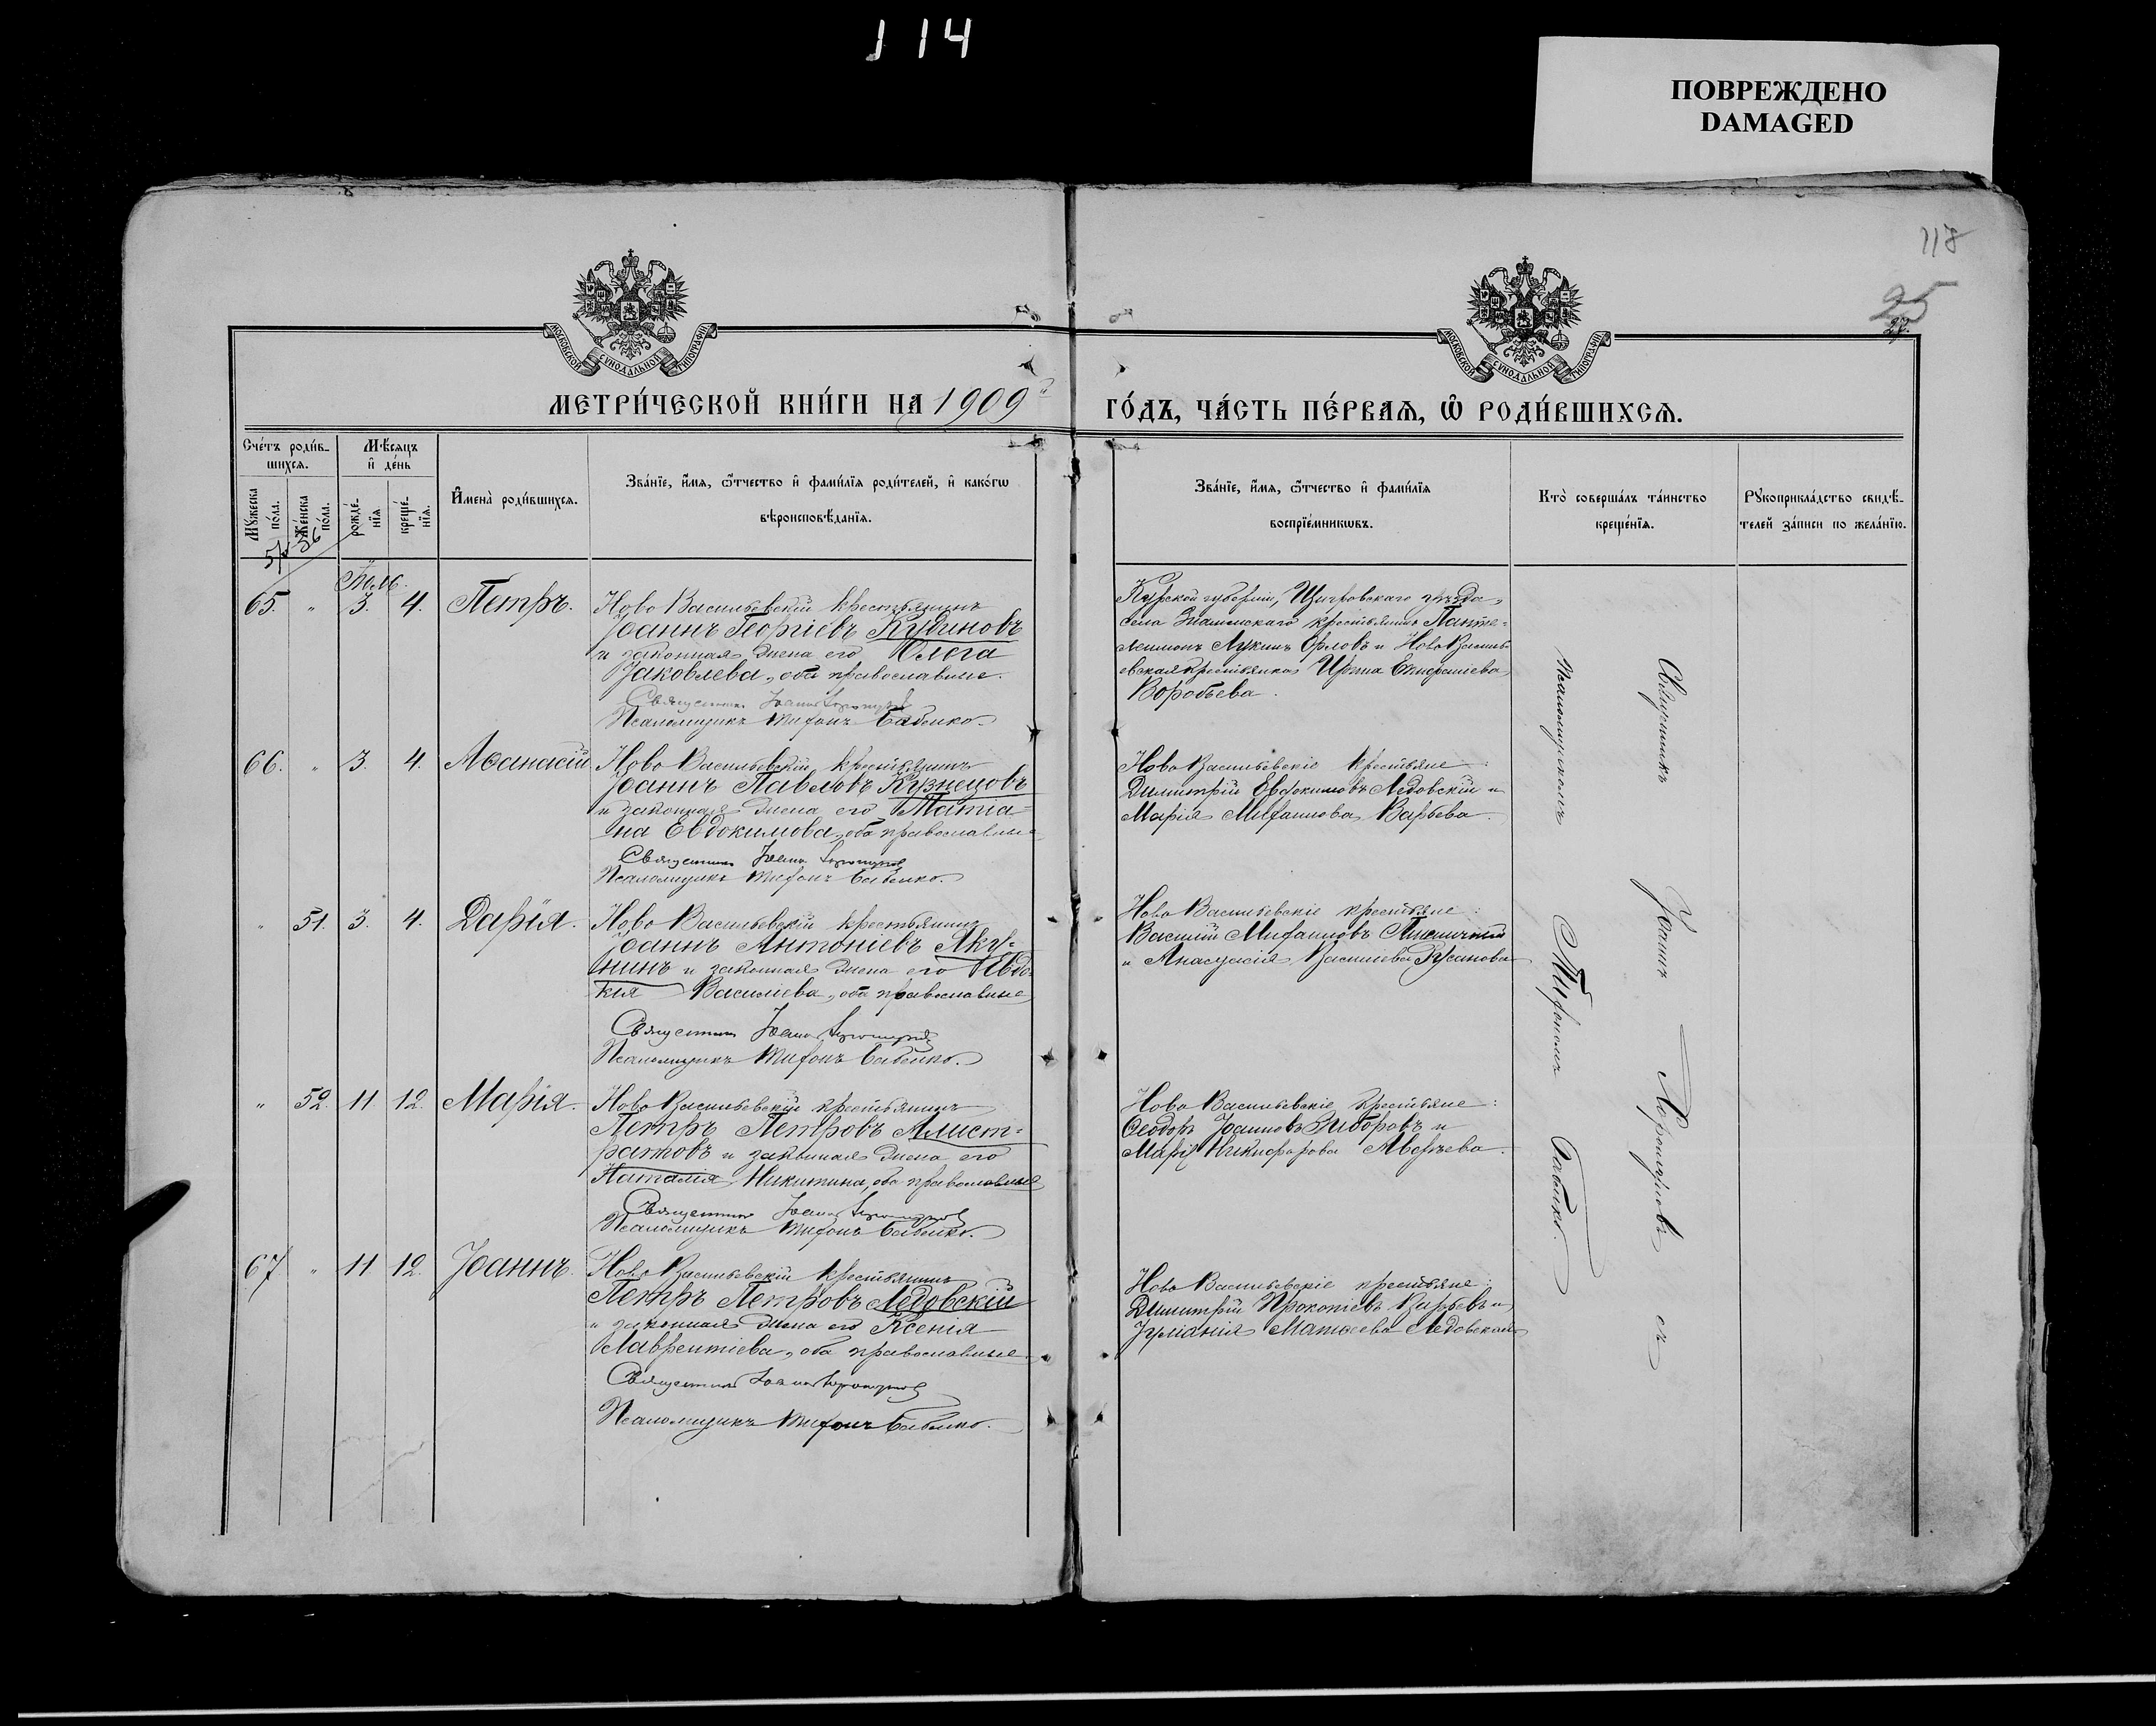 114
ПОВРЕЖДЕНО
DAMAGED
118
25
МОСКОВСКОЙ СѴНОДАЛЬНОЙ ТИПОГРАФІИ
МОСКОВСКОЙ СѴНОДАЛЬНОЙ ТИПОГРАФІИ
МЕТРИ́ЧЕСКОЙ КНИ́ГИ НА 1909
ГО́ДЪ, ЧА́СТЬ ПЕ́РВАѦ, Ѡ҆ РОДИ́ВШИХСѦ.
Сче́тъ роди́в-
шихсѧ.
Мꙋ́жеска
по́ла.
Же́нска
по́ла.
Мѣ́сѧцъ
и҆ де́нь
рожде́-
нїѧ
креще́-
нїѧ.
И҆мена̀ роди́вшихсѧ.
Зва́нїе, и҆́мѧ, ѻ҆́тчество и҆ фами́лїѧ роди́телей, и҆ како́гѡ
вѣроисповѣ́данїѧ.
Зва́нїе, и҆́мѧ, ѻ҆́тчество и҆ фами́лїѧ
воспрїе́мникѡвъ.
Кто̀ соверша́лъ та́инство
креще́нїѧ.
Рꙋкоприкла́дство свидѣ́-
телей за́писи по жела́нїю.
65. " 3. 4. Петръ.
Ново Васильевскій крестьянинъ
Іоаннъ Георгіевъ Кудиновъ
и законная жена его Ольга
Іаковлева, оба православные.
Священникъ Іоаннъ
Псаломщикъ Тифонъ Бабенко.
Курской губерніи, Щигровскаго уѣзда,
села крестьянинъ Панте-
леимонъ Лукинъ Орловъ и Ново Василь-
евская крестьянка Ирина Епифаніева
Воробьева.
66. " 3. 4. Аѳанасій
Ново Васильевскій крестьянинъ
Іоаннъ Павловъ Кузнецовъ
и законная жена его Татіа-
на Евдокимова, оба православные
Священникъ Іоаннъ
Псаломщикъ Тифонъ Бабенко.
Ново Васильевскіе крестьяне:
Димитрій Евдокимовъ Ледовскій и
Марія Михаилова Варѣева.
" 51. 3. 4. Дарія.
Ново Васильевскій крестьянинъ
Іоаннъ Антоніевъ Аку-
нинъ и законная жена его Евдо-
кія Василіева, оба православные
Священникъ Іоаннъ
Псаломщикъ Тифонъ Бабенко.
Ново Васильевскіе крестьяне:
Василій Михаиловъ Пшеничный
и Анастасія Василіева Русанова
" 52. 11 12. Марія.
Ново Васильевскій крестьянинъ
Петръ Петровъ Алист-
ратовъ и законная жена его
Наталія Никитина, оба православные
Священникъ Іоаннъ
Псаломщикъ Тифонъ Бабенко.
Ново Васильевскіе крестьяне:
Ѳеодоръ Іоанновъ Зиборовъ и
Марія Никифорова Аверьева.
67 " 11 12. Іоаннъ.
Ново Васильевскій крестьянинъ
Петръ Петровъ Ледовскій
и законная жена его Ксенія
Лаврентіева, оба православные.
Священникъ Іоаннъ
Псаломщикъ Тифонъ Бабенко.
Ново Васильевскіе крестьяне:
Димитрій Прокопіевъ Варѣевъ и
Іуліанія Матѳеева Ледовская
Священникъ Іоаннъ съ
псаломщикомъ Тифономъ Бабенко.